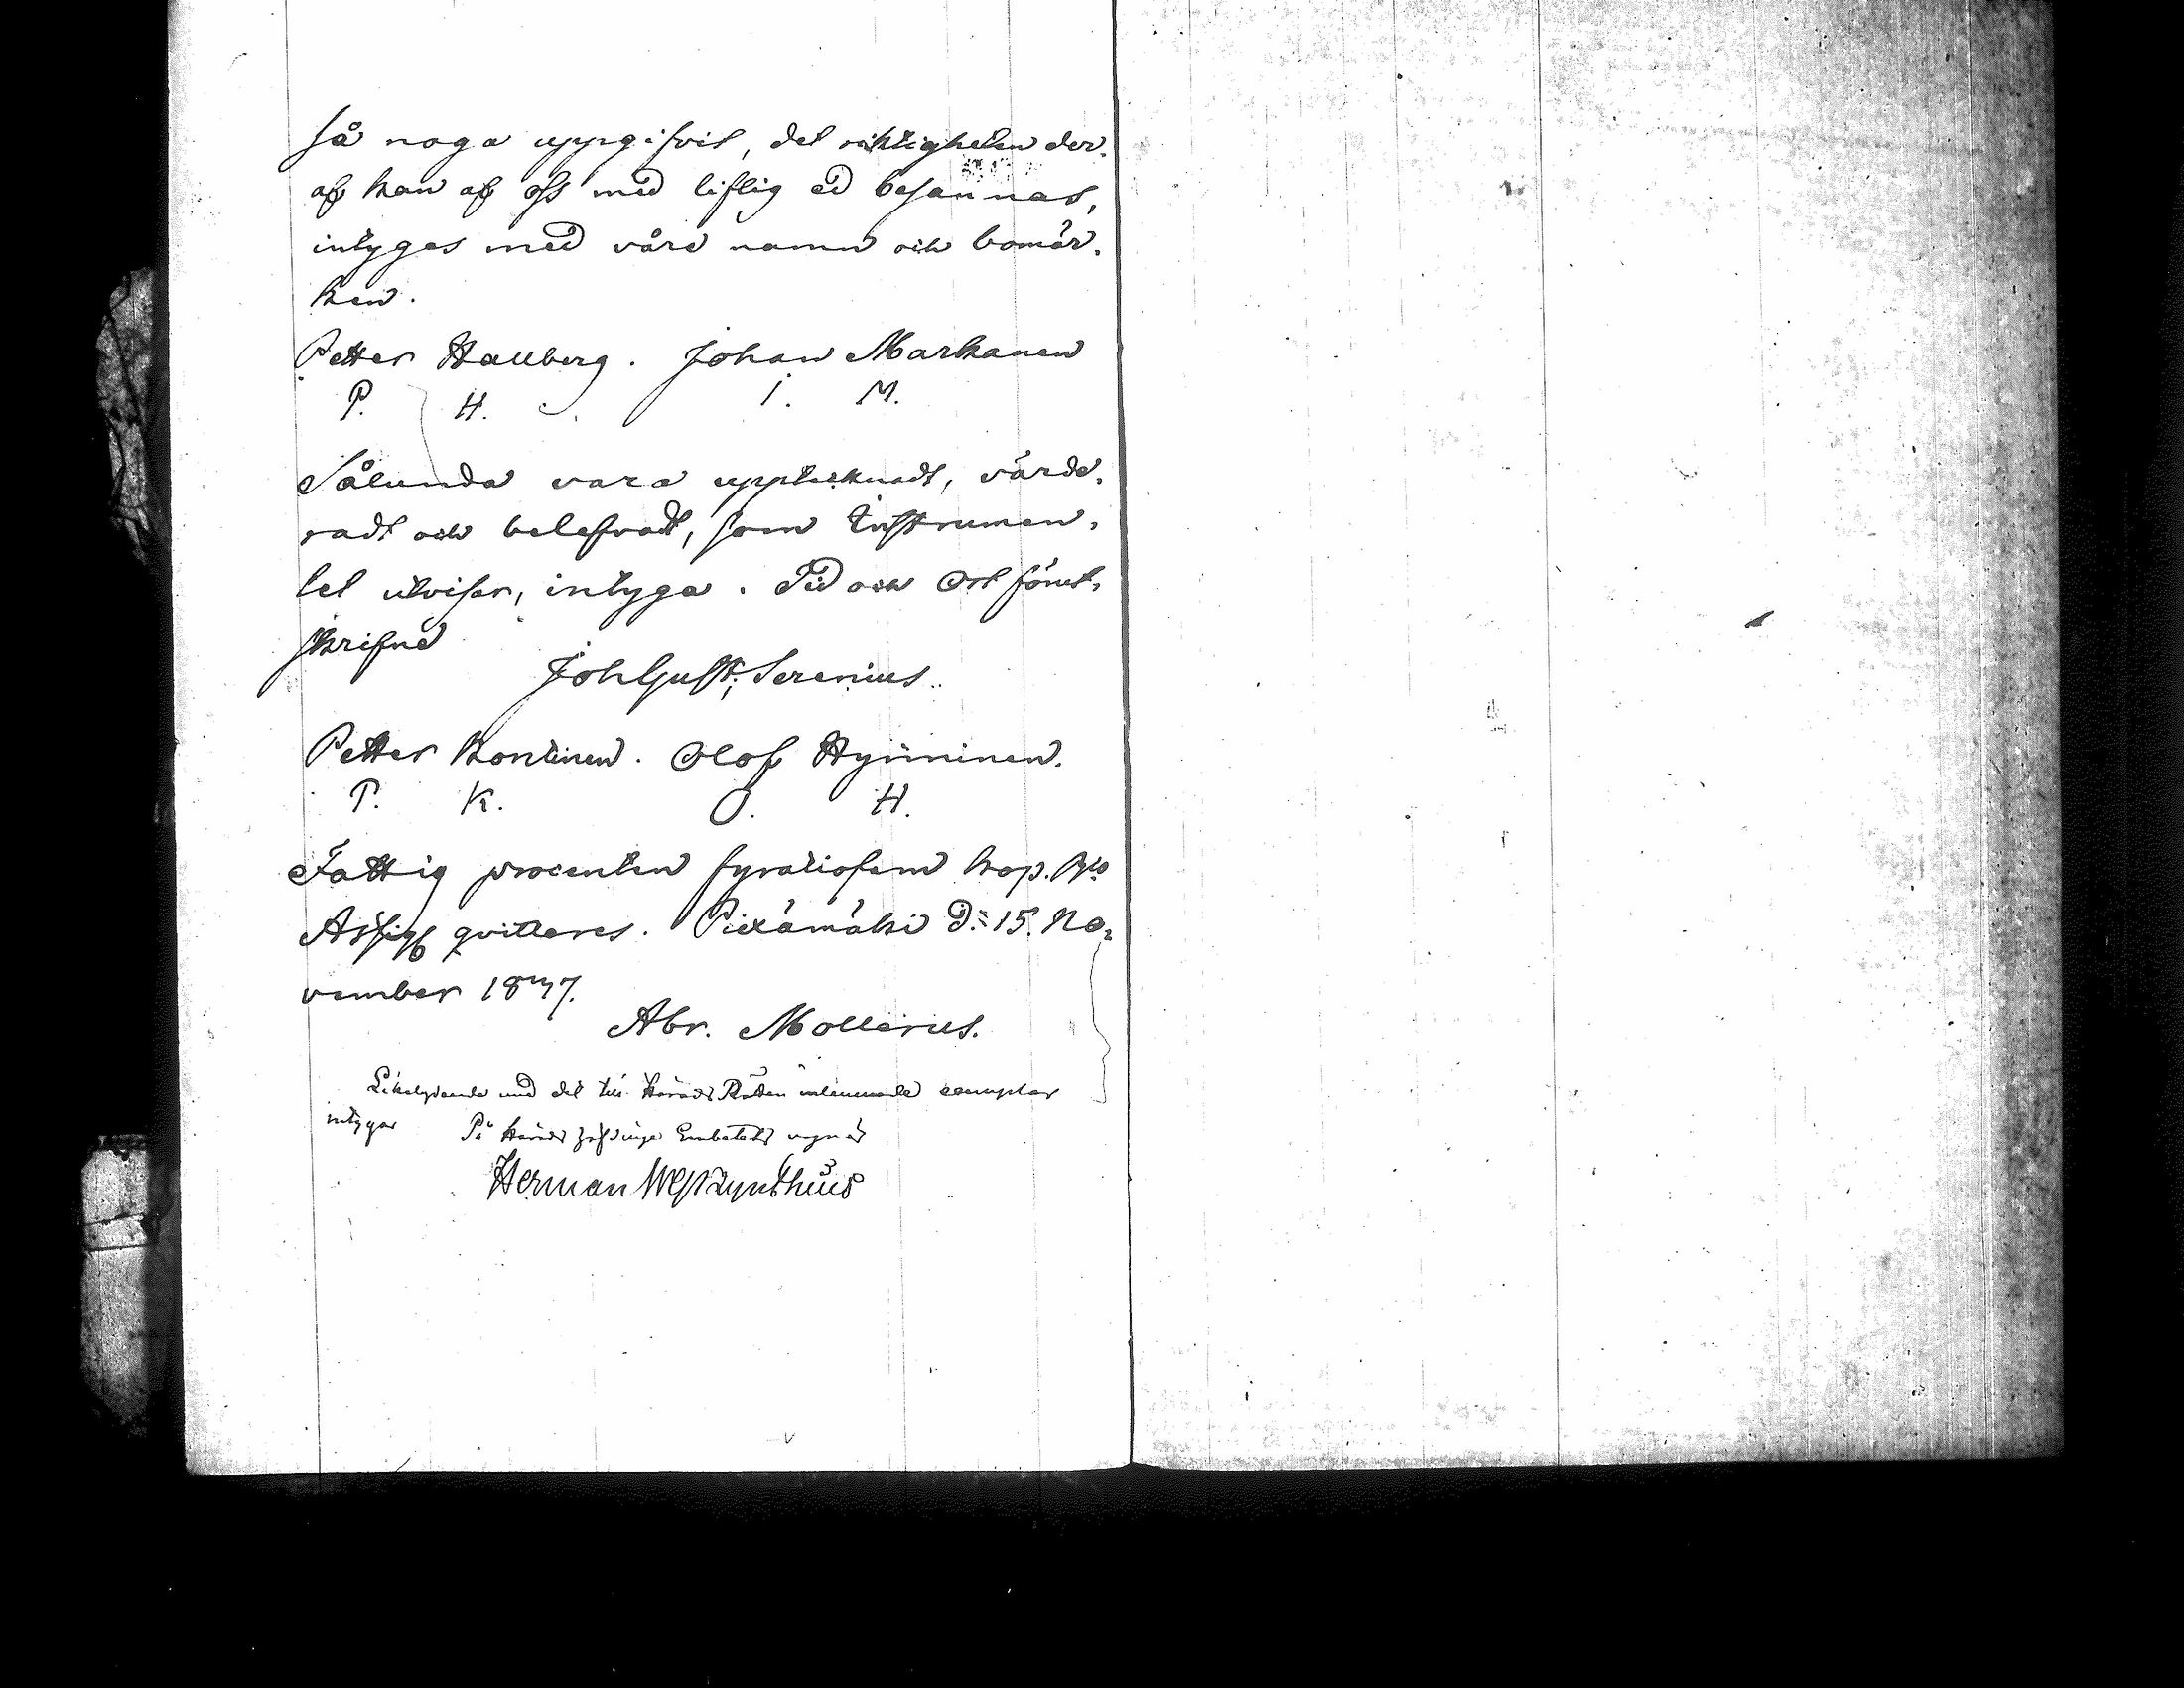 så noga uppgifvit, det riktigheten der-
af kan af oss med liflig ed besannas,
intygas med våre namn och bomär-
ken.
Petter Hallberg. Johan Markanen
P. H. I. M.
Sålunda vara upptecknadt, värde-
radt och belefvadt, som Instrumen-
tet utvisar, intyga. Tid och Ort förut-
skrifne
Joh Gust; Serenius
Petter Kontinen. Olof Hynninen.
P. K. O. H.
Fattig procenten fyratiofem kop.
Assign qvitteres. Piexämäki D: 15. No-
vember 1847.
Abr. Mollerus.
Likalydande med det till Härads Rätten inlemnade exemplar
intygar På Härads höfdinge Embetets vägnar
Herman Westzynthius